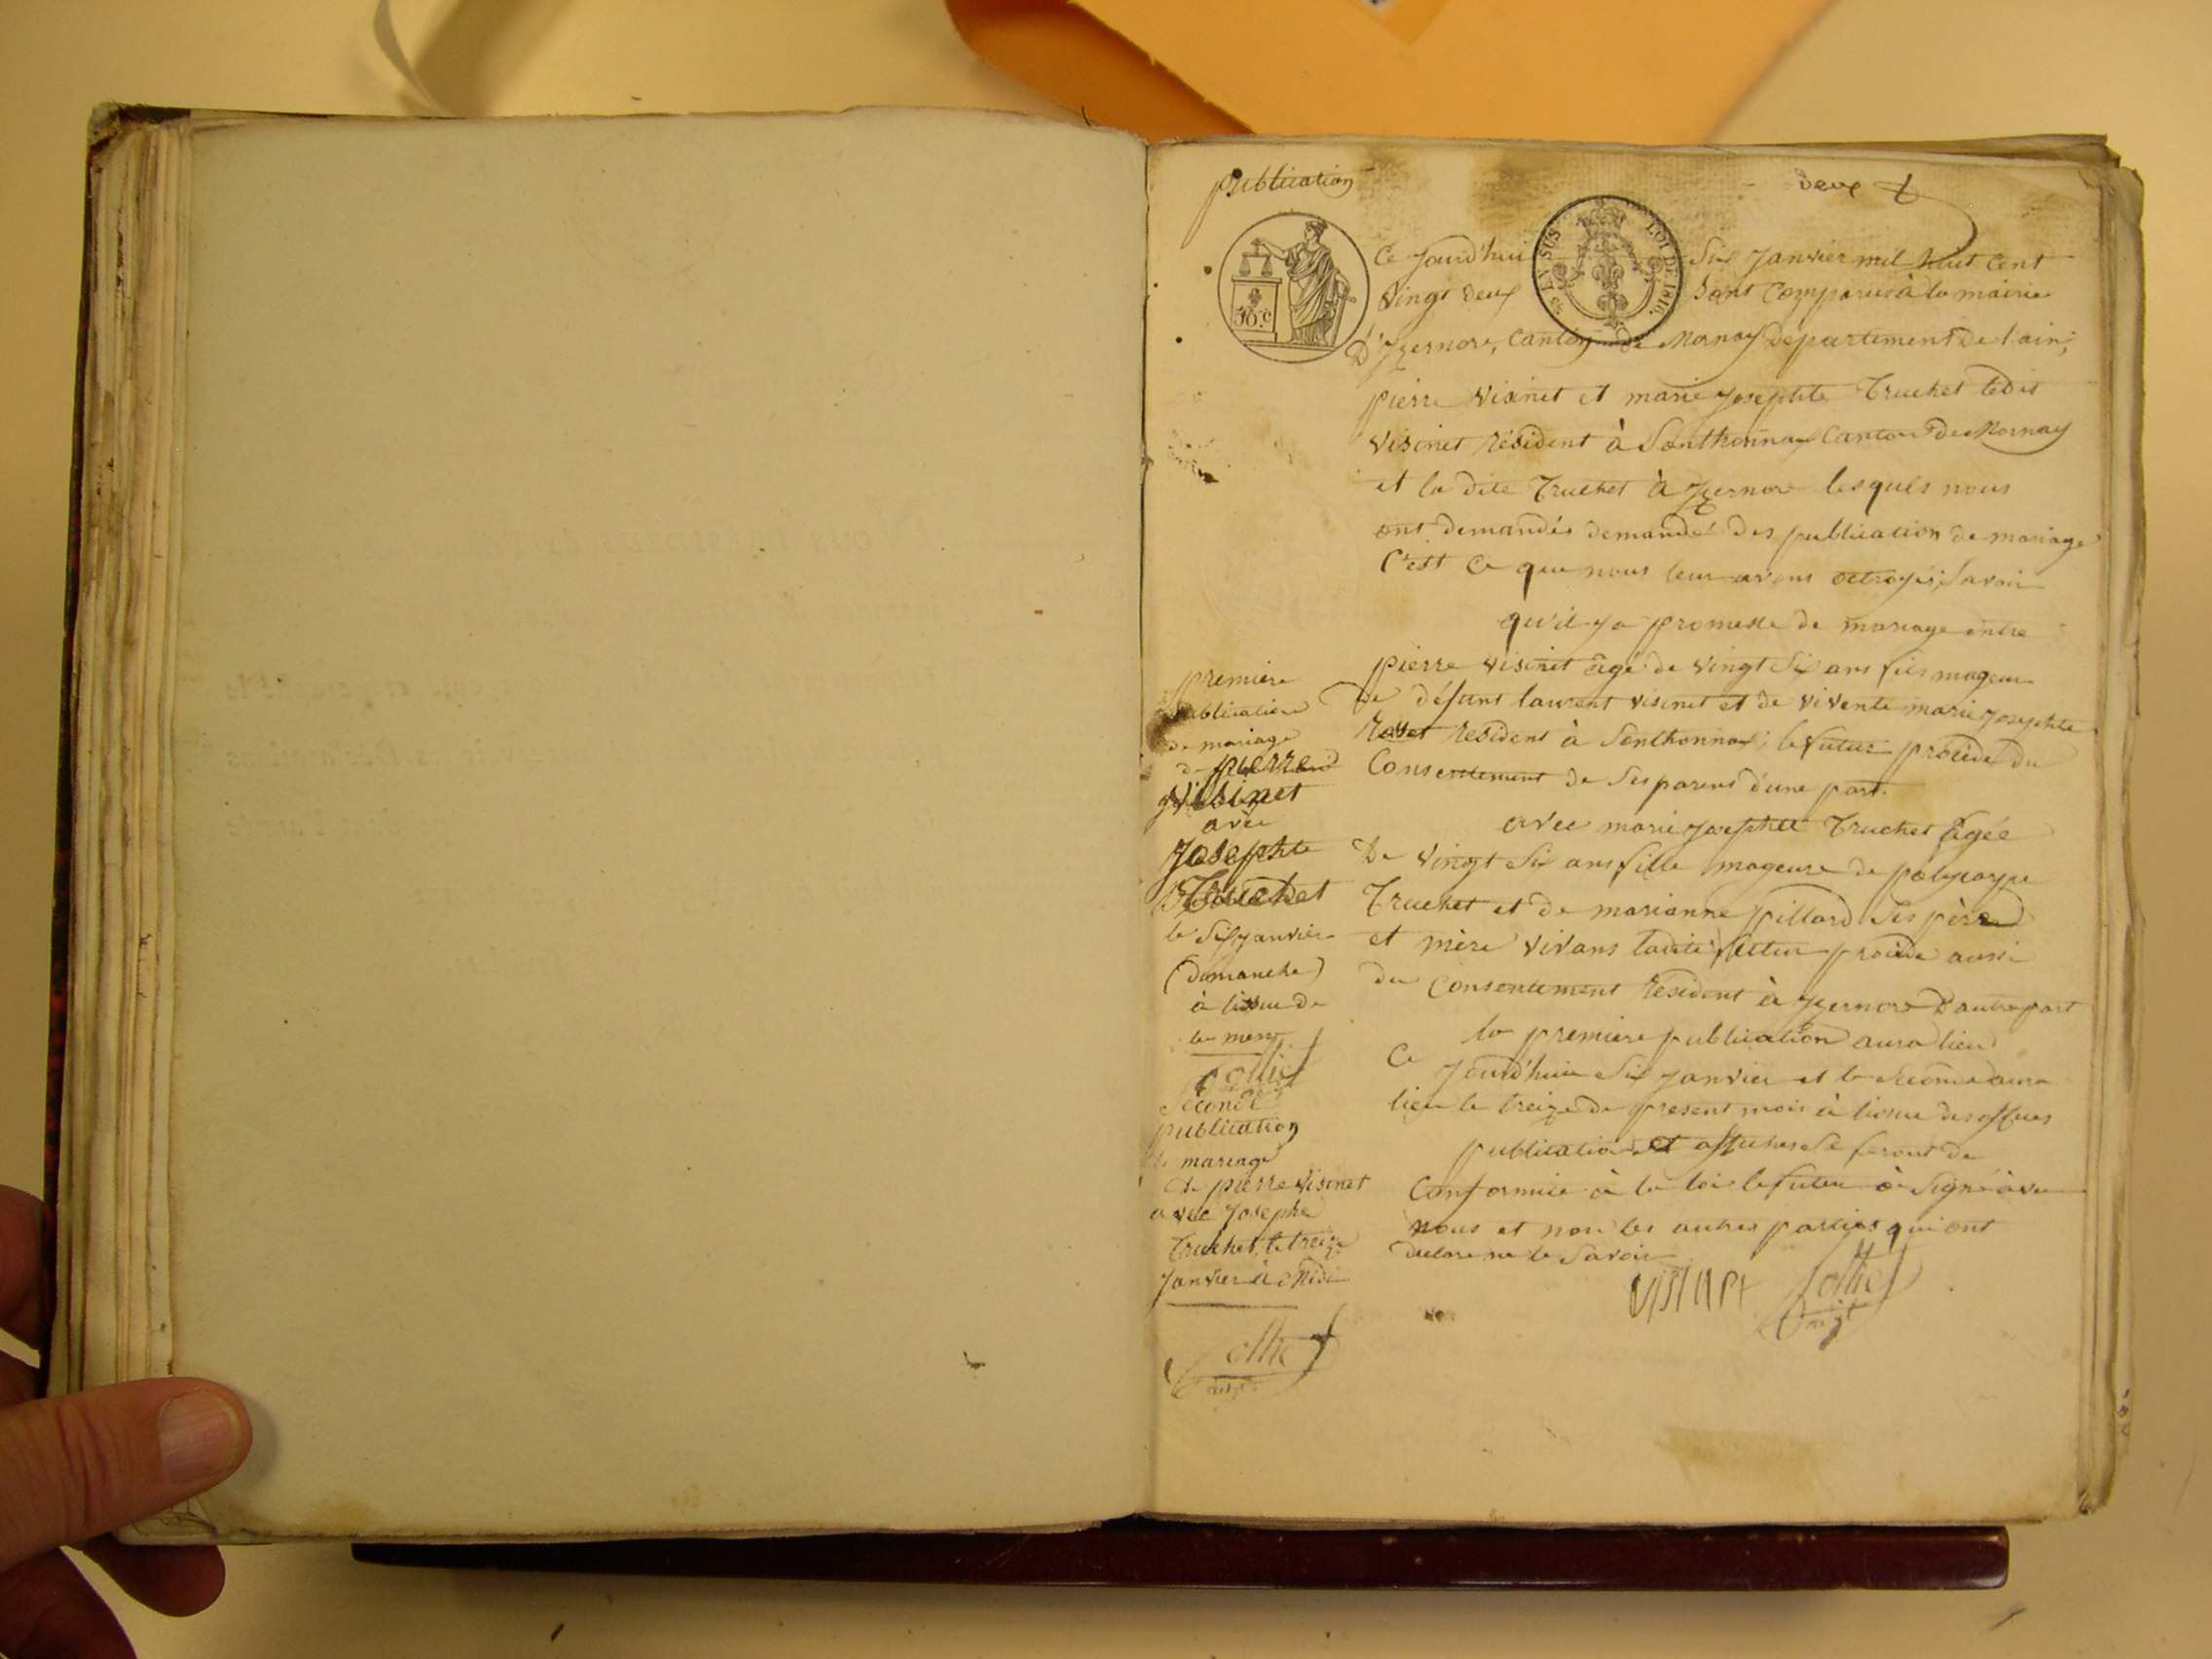 publication
deux
50 c
LOI DE 1816.
EN SUS
Ce jourd'hui six janvier mil huit cent
vingt deux sont comparus à la mairie
D'Izernore, canton de Nornay Departement de l'ain,
pierre visinet et marie josephte Truchet ledit
visinet résident à Sonthonnax canton de Nornay
et la dite Truchet à Izernore lesquels nous
ont demandés demandé des publication de mariage
C'est ce que nous leur avons octroyés, savoir
qu'il y a promesse de mariage entre
pierre visinet âgé de vingt six ans fils mageur
de défunt laurent visinet et de vivente marie josephte
Rosset résident à Sonthonnax; le futur procède du
Consentement de ses parens d'une part.
avec marie josephte Truchet âgée
De vingt six ans fille mageure de policarpe
Truchet et de marianne pillard ses père
et mère vivans ladite futur procède aussi
du Consentement résident à Izernore D'autre part
la première publication aura lieu
Ce jourd'huis six janvier et la seconde aura
lieu le treize du present mois à lissue des offices
publication et affiches se feront de
Conformité à la loi le futur à signé avec
nous et non les autres parties qui ont
declaré ne le savoir
visinet
première
publication
de mariage
de pierre
visinet
avec
Josephte
Truchet
le six janvier
(dimanche)
à lissue de
la messe
seconde
publication
de mariage
de pierre visinet
avec josephe
Truchet, le treize
janvier à midi